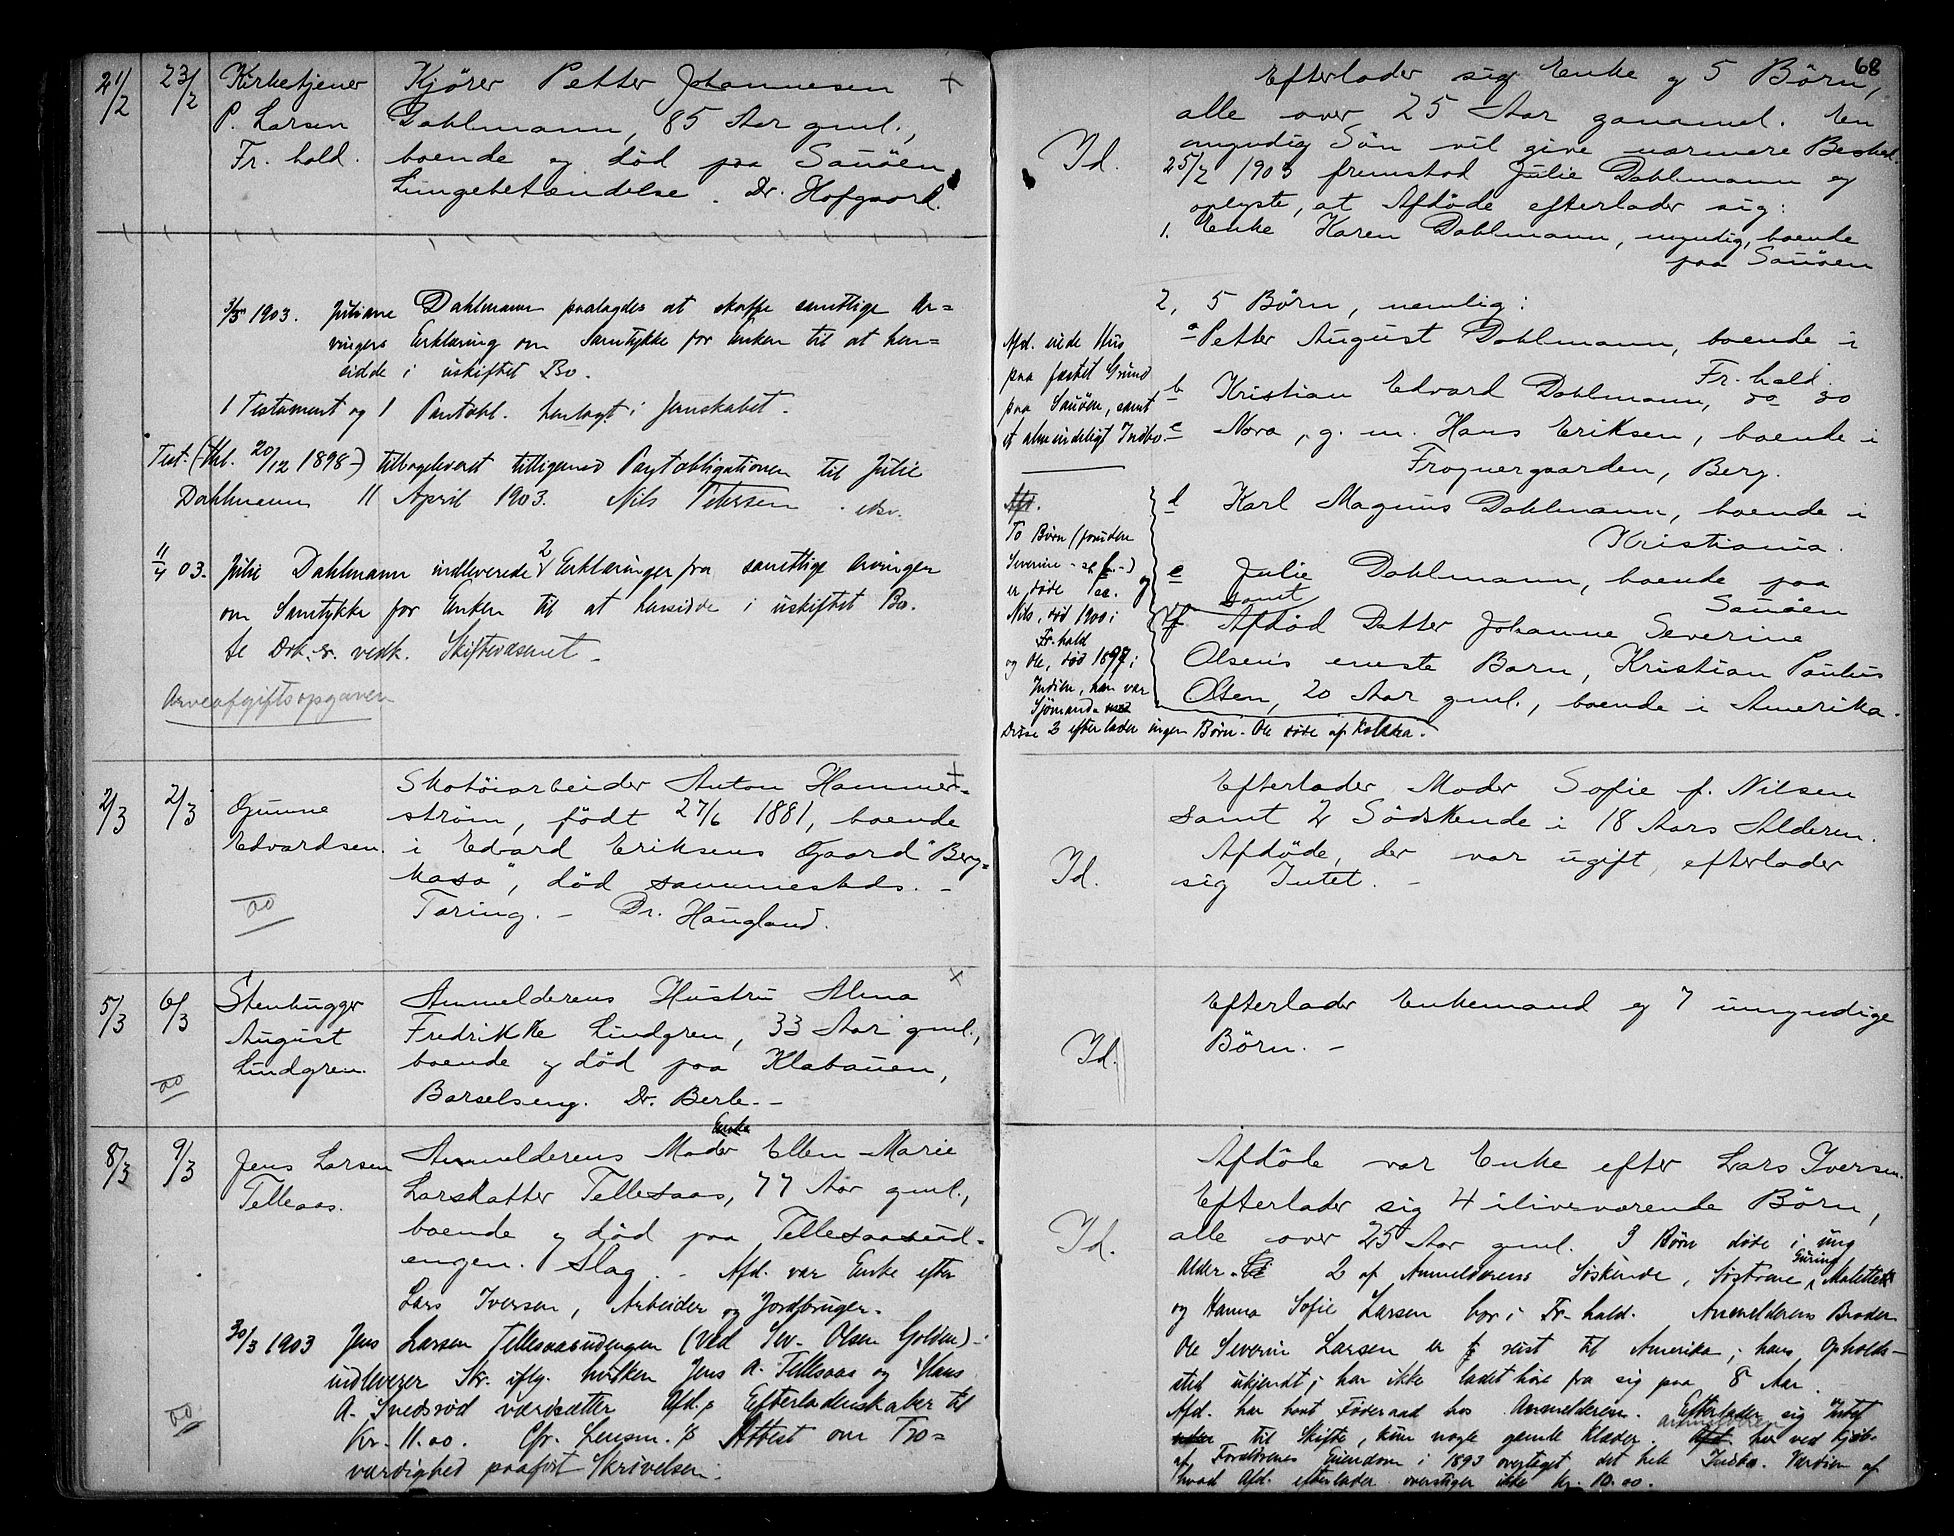 68
21/2 23/2 Kirketjener Kjører Petter Johannesen
P. Larsen Dahlmann, 85 Aar gml.,
Fr.hald. boende og død paa Sauøen
Lungebetændelse. Dr. Hofgaard.
3/3 1903. Juliane Dahlmann paalagdes at skaffe samtlige Ar=
vingers Erklæring om Samtykke for Enken til at hen=
sidde i uskiftet Bo.
1 Testament og 1 Pantobl. henlagt i Jernskabet.
Test. (thl. 20/12 1898) tilbageleveret tilligemed Pantobligationen til Julie
Dahlmann 11 April 1903. Nils Petersen
11/4 03. Julie Dahlmann indleverede 2 Erklæringer fra samtlige Arvinger
om Samtykke for Enken til at hensidde i uskiftet Bo.
Se Drk. vedk. Skiftevæsenet
Arveafgiftsopgaven
Id.
Efterlader sig Enke og 5 Børn,
alle over 25 Aar gammel. En
myndig Søn vil give nærmere Besked.
25/2 1903 fremstod Julie Dahlmann og
oplyste, at Afdøde efterlader sig:
1. Enke Karen Dahlmann, myndig, boende
paa Sauøen
2, 5 Børn, nemlig:
a Petter August Dahlmann, boende i
Fr.hald.
b Kristian Edvard Dahlmann, do do
c Nora, g. m. Hans Eriksen, boende i
Frognergaarden, Berg.
d Karl Magnus Dahlmann, boende i
Kristiania.
e Julie Dahlmann, boende paa
Sauøen
samt
f. Afdød Datter Johanne Severine
Olsens eneste Barn, Kristian Paulus
Olsen, 20 Aar gml., boende i Amerika.
Afd. eiede Hus
paa fæstet Grund
paa Sauøen, samt
et almindeligt Indbo.
Afd.
To Børn (foruden
Severine - se f. -)
er døde
Nils, død 1900 i
Fr.hald
og Ole, død 1897 i
Indien, han var
Sjømand
Disse 2 efterlader ingen Børn. Ole døde af Kolera.
2/3 2/3 Gunne Skotøiarbeider Anton Hammer=
Edvardsen. strøm, født 27/6 1881, boende
i Edvard Eriksens Gaard "Berg=
hasa", død sammesteds. -
Tæring. - Dr. Haugland.
Id.
Efterlader Moder Sofie f. Nilsen
samt 2 Sødskende i 18 Aars Alderen.
Afdøde, der var ugift, efterlader
sig Intet. -
5/3 6/3 Stenhugger Anmelderens Hustru Alma
August Fredrikke Lindgren, 33 Aar gml.,
Lindgren. boende og død paa Klabauen,
Barselseng. Dr. Berle. -
Id.
Efterlader Enkemand og 7 umyndige
Børn. -
8/3 9/3 Jens Larsen Anmelderens Moder Enke Ellen Marie
Telleaas. Larsdatter Tellesaas, 77 Aar gml.,
boende og død paa Tellesaasud=
engen. Slag. - Afd. var Enke efter
Lars Iversen, Arbeider og Jordbruger.
30/3 1903 Jens Larsen Tellesaasudengen (ved Sev. Olsen Golden)
indleverer Skr. iflg. hvilken Jens A. Tellesaas og Hans
A. Svedsrød værdsætter Afd.s Efterladenskaber til
Kr. 11.00. Cfr. Lensm.s Attest om Tro=
værdighed paaført Skrivelsen.
Id.
Afdøde var Enke efter Lars Iversen.
Efterlader sig 4 ilivsværende Børn,
alle over 25 Aar gml. 3 Børn døde i ung
Alder. 2 af Anmelderens Søskende, Søstrene Guring Malette
og Hanna Sofie Larsen bor i Fr.hald. Anmelderens Broder
Ole Severin Larsen er reist til Amerika; hans Opholds-
sted ukjendt; har ikke ladet høre fra sig paa 8 Aar.
Afd. har havt Føderaad hos Anmelderen. Efterlader sig Intet
til Skifte, kun nogle gamle Klæder. Anmelderen har ved Kjøb
af Forældrenes Eiendom i 1893 overtaget det hele Indbo. Værdien af
hvad Afd. efterlader overstiger ikke Kr. 10.00.